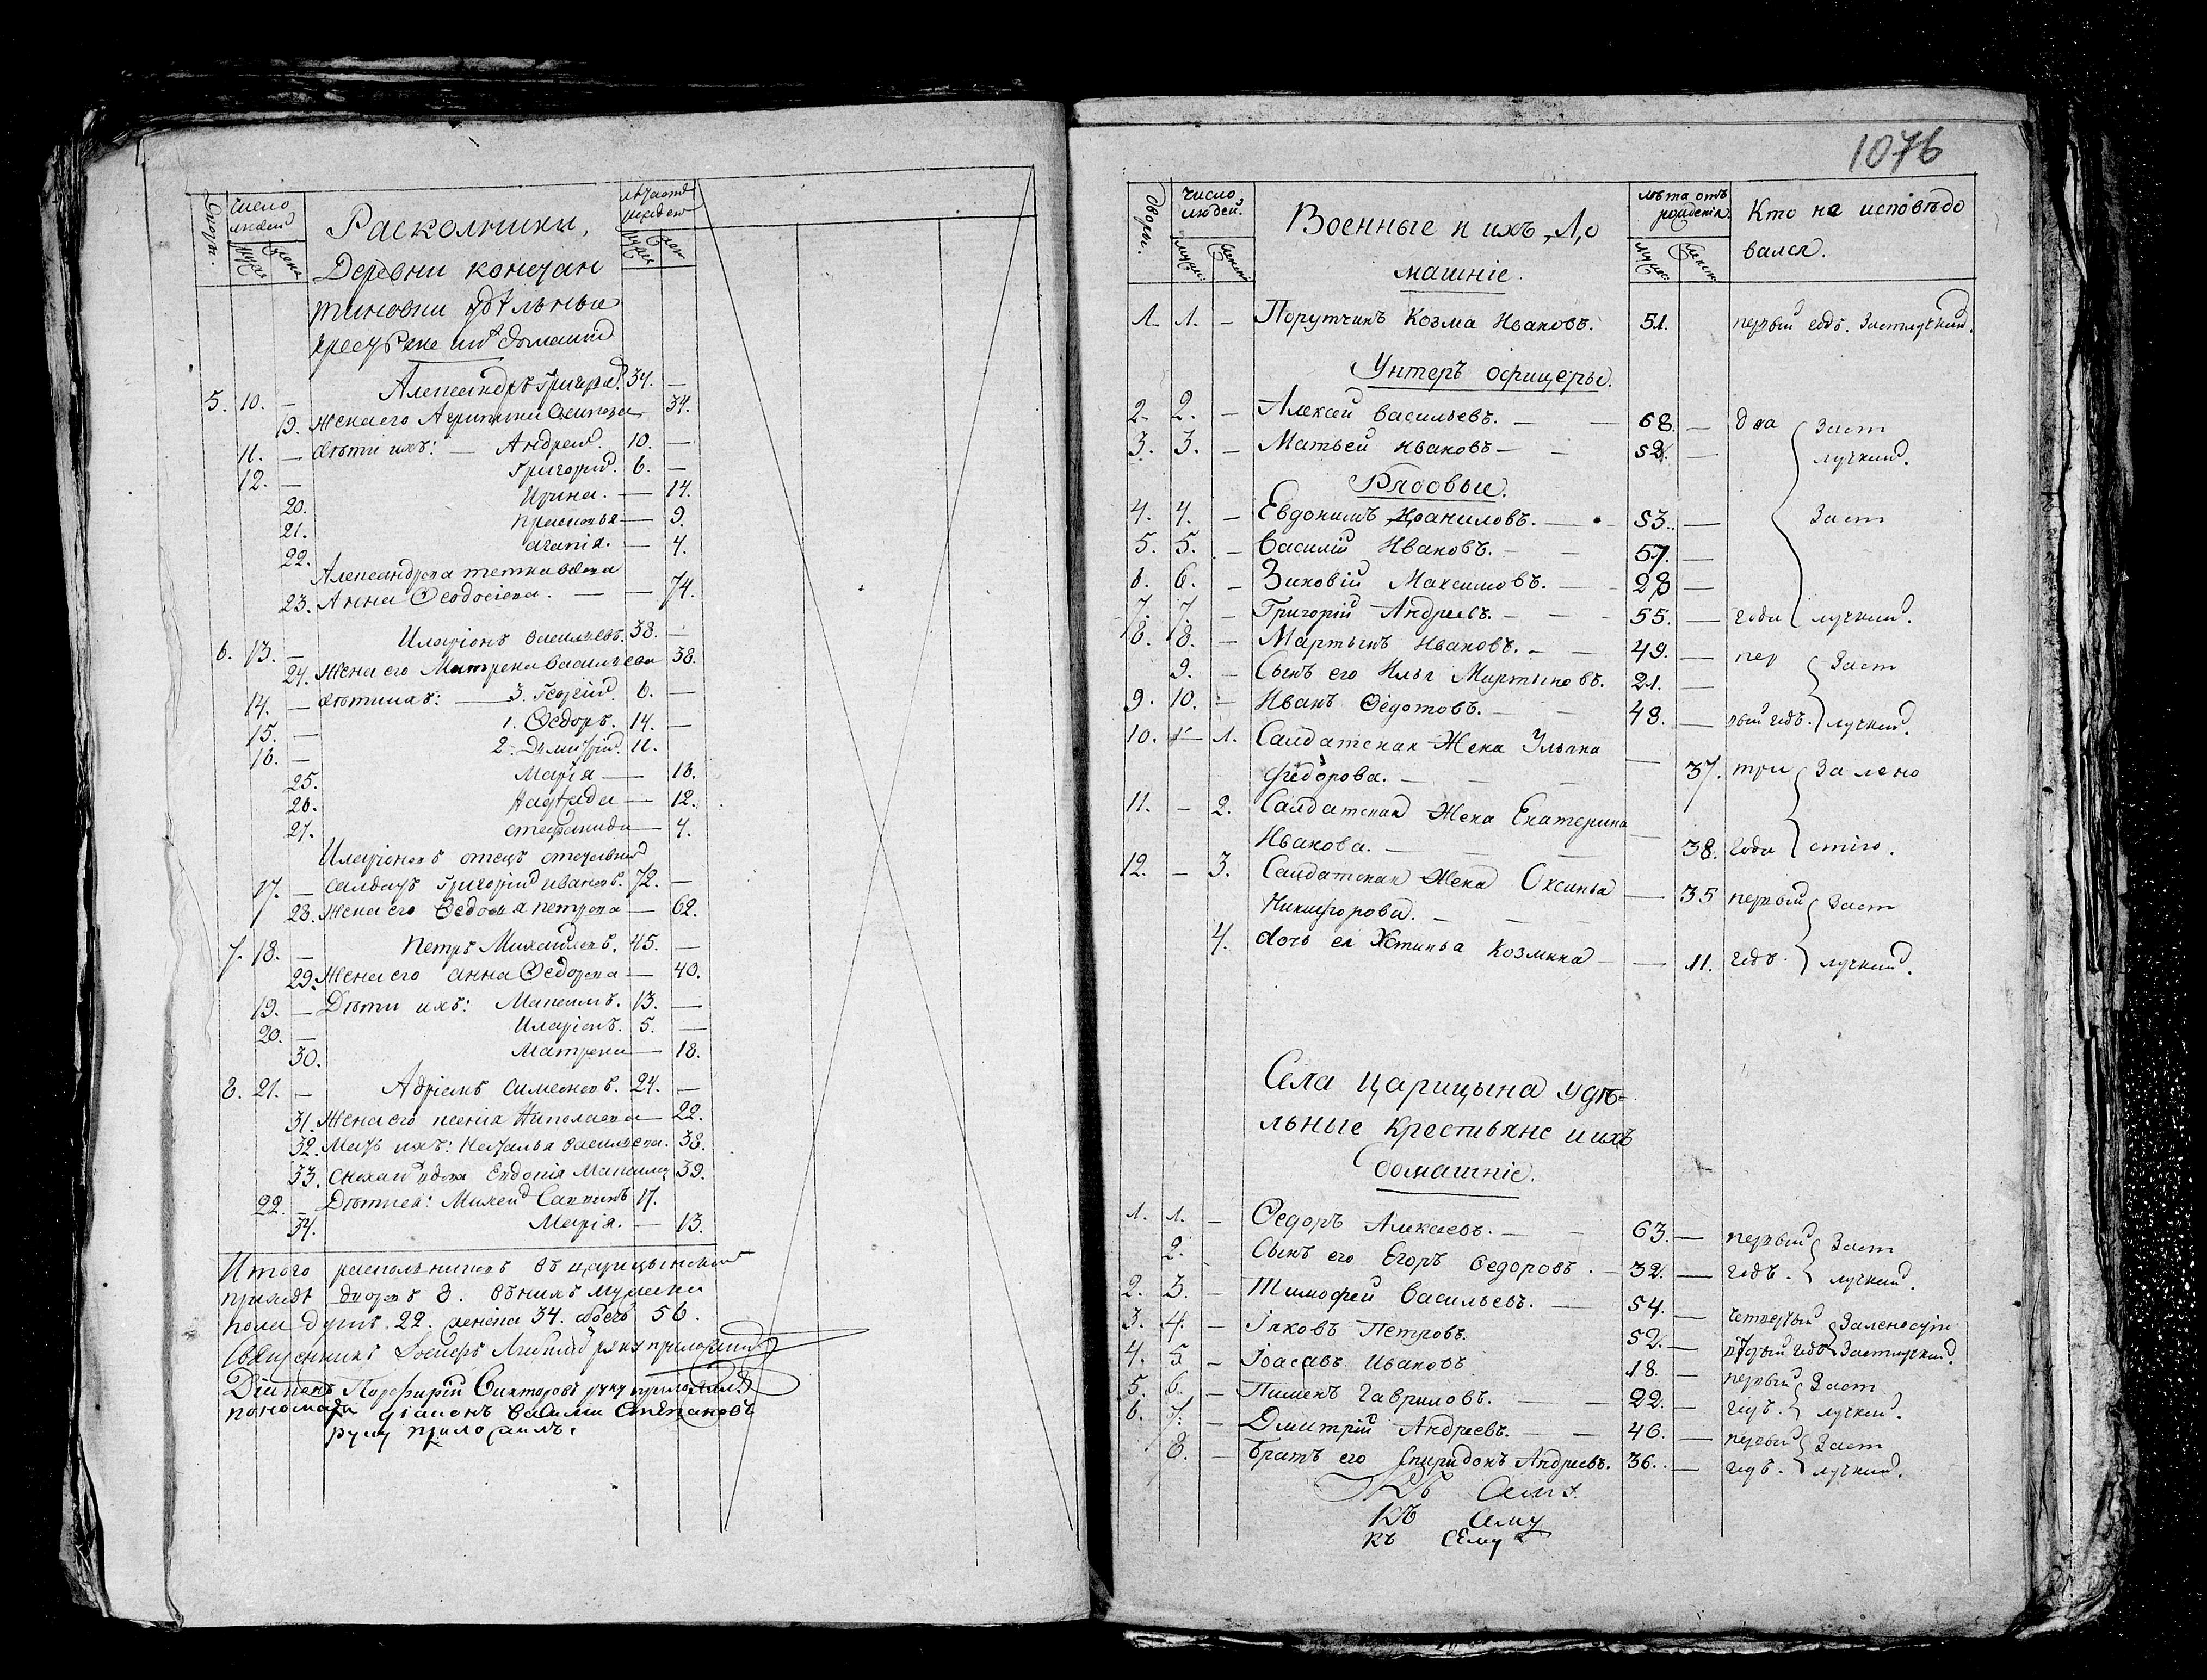 Число людей
Раскольники,
Деревни констан
тиновки удѣльныя
5. 10. — Александръ Григорьев. 34. —
19. жена его Осипова 34.
11. — дѣти ихъ: — Андрей. 10. —
12. — Григорій. 6. —
20. Ирина. — 14.
21. прасковья — 9.
22. агапія. — 4.
Александрова тетка вдова
23. Анна Ѳеодосіева. — — 74.
6. 13. — Иларіонъ васильевъ. 38. —
24. жена его Матрена васильева 38.
14. — дѣти ихъ: — 3. Георгій. 6. —
15. — 1. Ѳедоръ. 14. —
16. — 2. Димитрій. 11.
25. Марія — 16.
26. надежда — 12.
27. стефанида — 4.
Иларіоновъ отецъ отставный
17. — салдатъ Григорій ивановъ. 72. —
28. жена его Ѳедосья петрова — 62.
7. 18. — Петръ Михайловъ. 45. —
29. жена его анна Ѳедорова — 40.
19. — Дѣти ихъ: Максимъ. 13. —
20. — Иларіонъ. 5. —
30. Матрена — 18.
8. 21. — Адріанъ симеоновъ. 24. —
31. жена его ксенія Николаева — 22.
32. Мать ихъ: Наталья васильева. 38.
33. вдова Евдокія Максимо 39.
22. — Дѣти ея: Михей Савинъ 17.
34. Марія. — 13.
Итого раскольниковъ въ царицынскомъ
приходѣ дворовъ 8. въ нихъ мужеска
пола душъ 22. женска 34. обоего 56.
Священникъ руку приложилъ
Діаконъ Порфирій Викторовъ руку приложилъ
пономарь діаконъ васили Степановъ
руку приложилъ.
1076
Дворы. Число людей. Военные и ихъ до лѣта отъ рожденія. Кто не исповѣдо
машніе. вался.
1. 1. — Порутчикъ Козма Ивановъ. 51. первый годъ. Застлучкий.
Унтеръ офицеры.
2. 2. — Алексѣй васильевъ. — — 68. — два Заст
3. 3. — Матвей ивановъ — — 52. — лучкий.
Рядовые.
4. 4. — Евдокимъ Даниловъ. — 53. — Заст
5. 5. — василій Ивановъ. — — 57. —
6. 6. — Зиновій Максимовъ. — 28 —
7. 7. — Григорій Андреевъ. — — 55. — года лучкий.
8. 8. — Мартынъ Ивановъ. — — 49. — пер Заст
9. — Сынъ его Илья Мартыновъ. 21. —
9. 10. — Иванъ Ѳедотовъ. — — 48. — вый годъ. лучкий.
10. — 1. Салдатская Жена Ульяна
Федорова. — — — — 37. три За лено
11. — 2. Салдатская Жена Екатерина
Иванова. — — — — 38. года стію.
12. — 3. Салдатская Жена Оксинья — 35 первый Заст
Никифорова. —
4. дочь ея Устинья козмина — — 11. годъ. лучкий.
Села царицына удѣ=
льные крестьяне и ихъ
домашніе.
1. 1. — Ѳедоръ Алексеевъ. — — 63. — первый Заст
2. Сынъ его Егоръ Ѳедоровъ. — 32. — годъ. лучкий.
2. 3. — Тимофей васильевъ. — 54. — четвертый Заленосtію
3. 4. — Іаковъ Петровъ. 52. — вторый годъ Застлучкий.
4. 5 — Іоасавъ Ивановъ 18. — первый Заст
5. 6. — Пименъ Гавриловъ. — — 22. — годъ. лучкий.
6. 7. — Дмитрій Андреевъ. — — 46. — первый Заст
8. — Братъ его Спиридонъ Андреевъ. 36. — годъ. лучкий.
Къ Сему
къ Сему
къ Сему